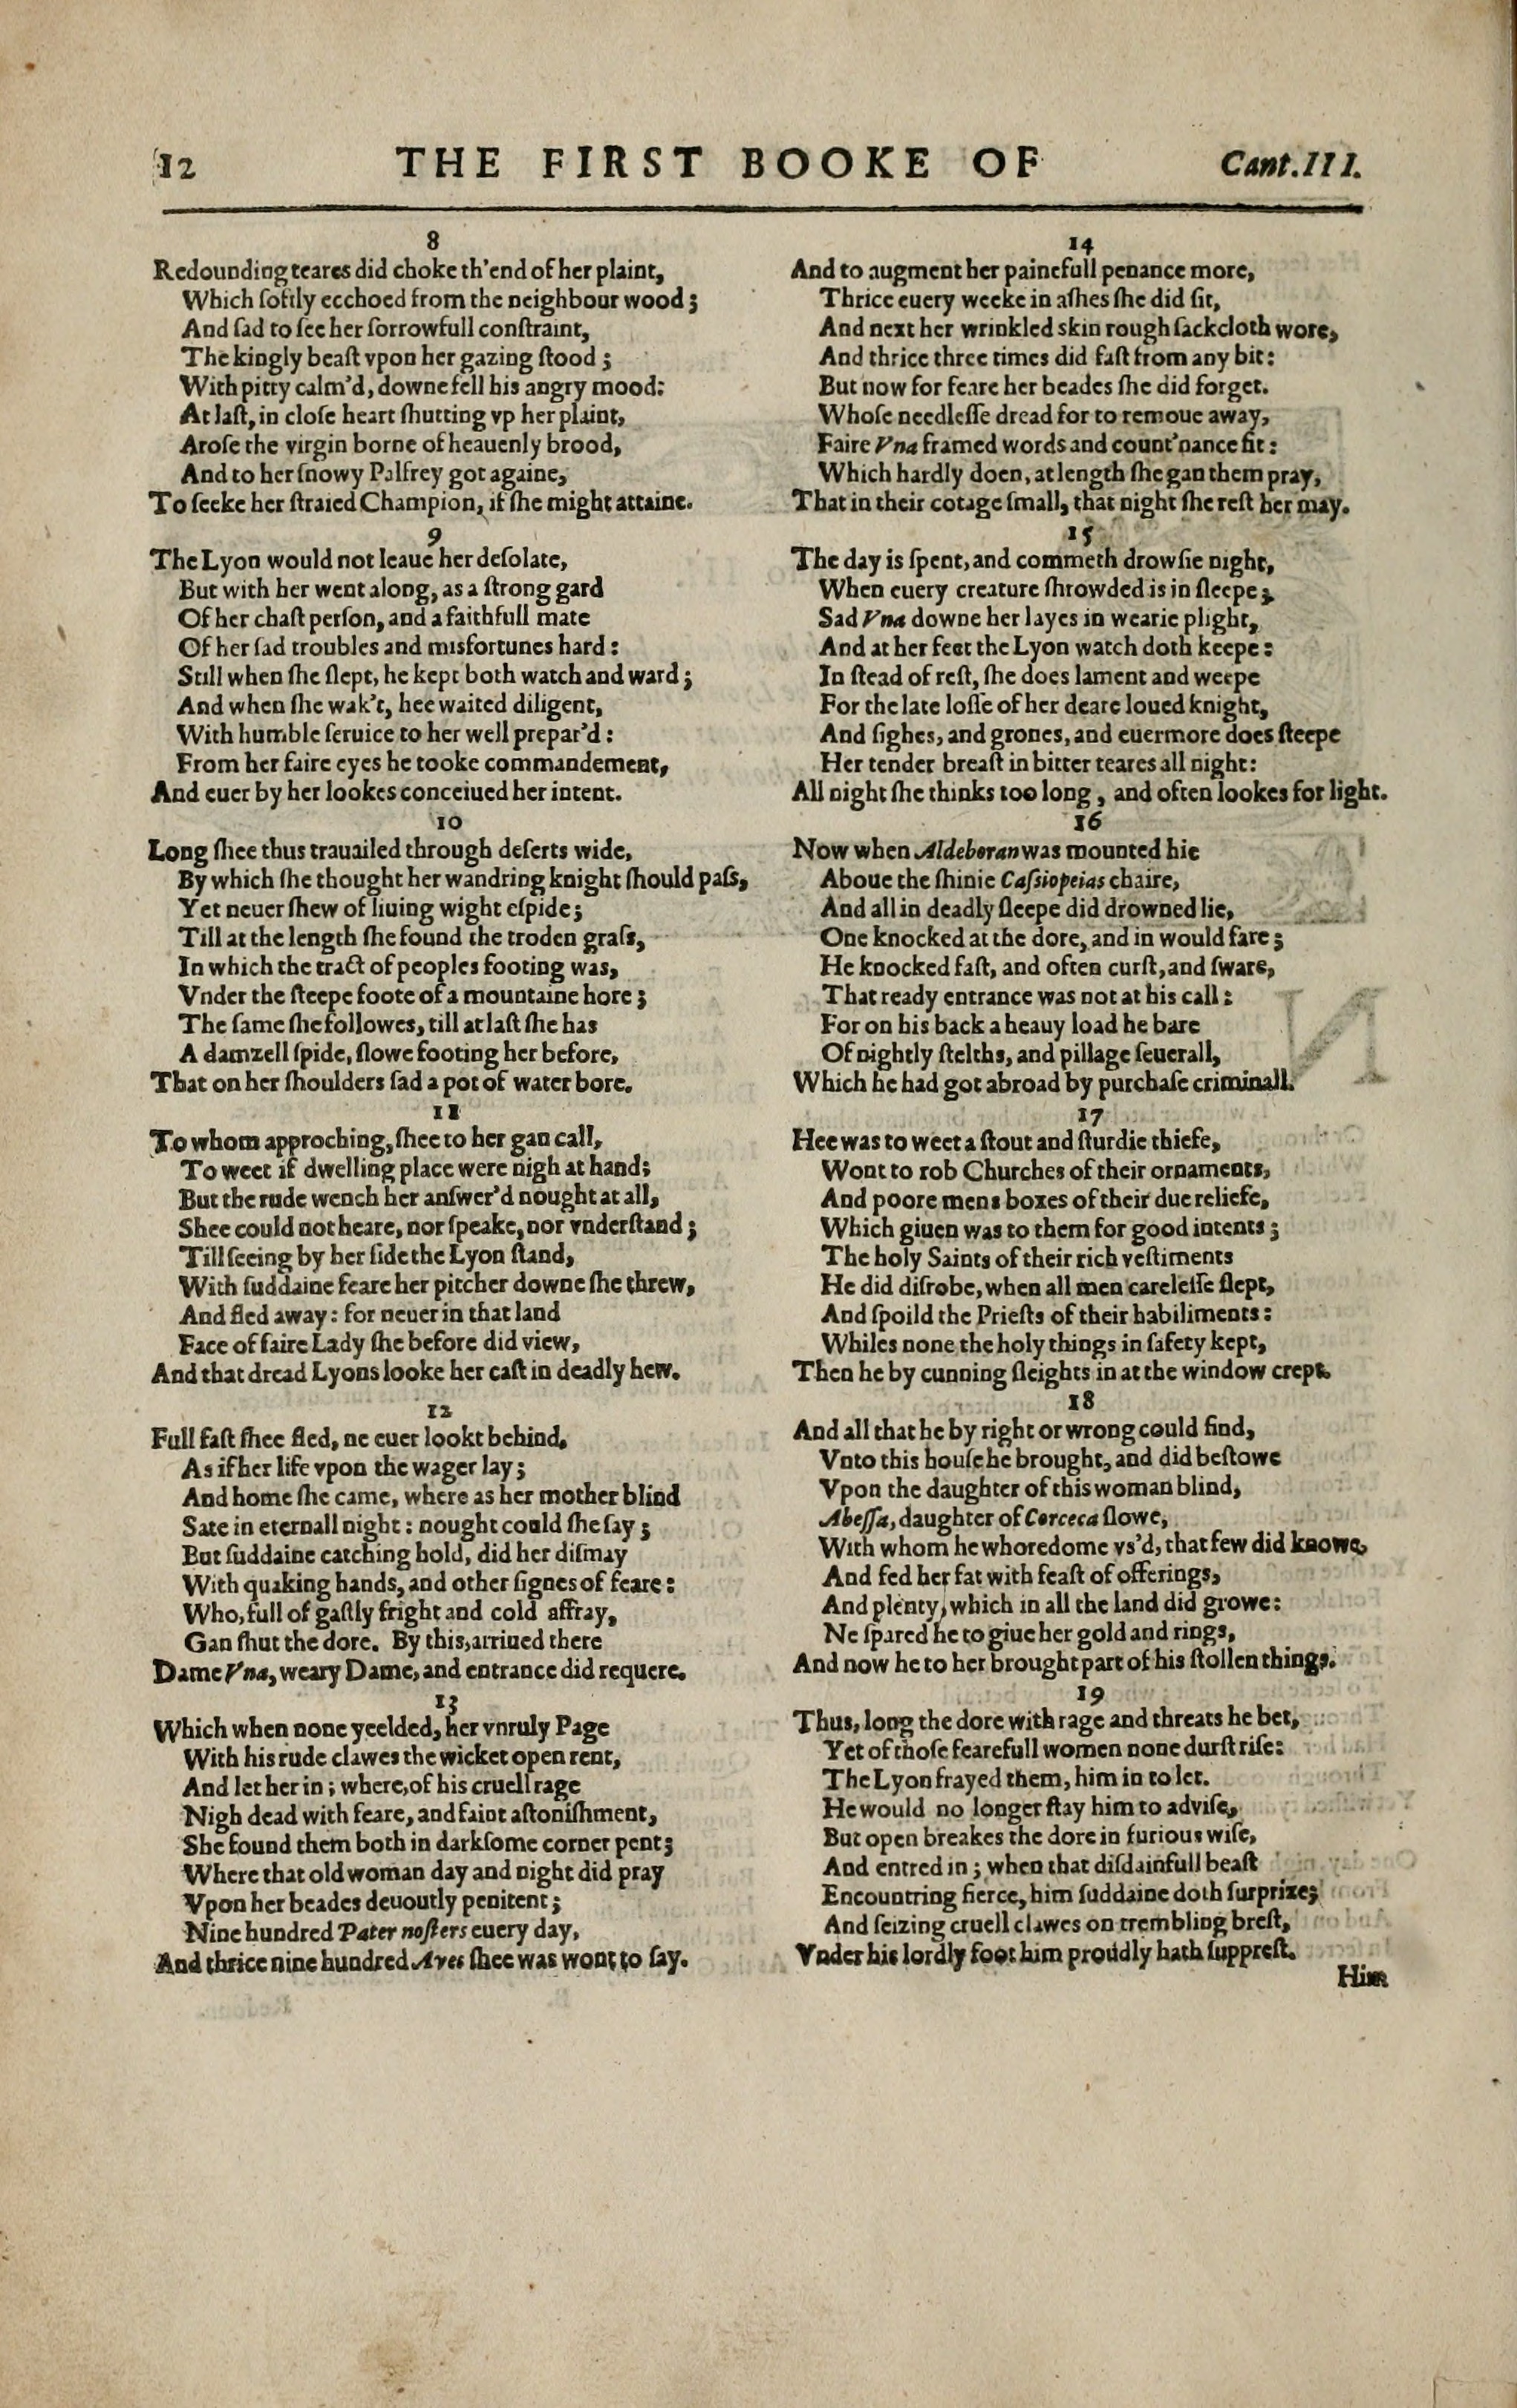 12 THE FIRST BOOKE OF Cant.III.
8
Redounding teares did choke th'end of her plaint,
Which ſoftly ecchoed from the neighbour wood;
And ſad to ſee her ſorrowfull conſtraint,
The kingly beaſt vpon her gazing ſtood;
With pitty calm'd, downe fell his angry mood:
At laſt, in cloſe heart ſhutting vp her plaint,
Aroſe the virgin borne of heauenly brood,
And to her ſnowy Palfrey got againe,
To ſeeke her ſtraied Champion, if ſhe might attaine.
9
The Lyon would not leaue her deſolate,
But with her went along, as a ſtrong gard
Of her chaſt perſon, and a faithfull mate
Of her ſad troubles and misfortunes hard:
Still when ſhe ſlept, he kept both watch and ward;
And when ſhe wak't, hee waited diligent,
With humble ſeruice to her well prepar'd:
From her faire eyes he tooke commandement,
And euer by her lookes conceiued her intent.
10
Long ſhee thus trauailed through deſerts wide,
By which ſhe thought her wandring knight ſhould paſs,
Yet neuer ſhew of liuing wight eſpide;
Till at the length ſhe found the troden graſs,
In which the tract of peoples footing was,
Vnder the ſteepe foote of a mountaine hore;
The ſame ſhe followes, till at laſt ſhe has
A damzell ſpide, ſlowe footing her before,
That on her ſhoulders ſad a pot of water bore.
11
To whom approching, ſhee to her gan call,
To weet if dwelling place were nigh at hand;
But the rude wench her anſwer'd nought at all,
Shee could not heare, nor ſpeake, nor vnderſtand;
Till ſeeing by her ſide the Lyon ſtand,
With ſuddaine feare her pitcher downe ſhe threw,
And fled away: for neuer in that land
Face of faire Lady ſhe before did view,
And that dread Lyons looke her caſt in deadly hew.
12
Full faſt ſhee fled, ne euer lookt behind,
As if her life vpon the wager lay;
And home ſhe came, where as her mother blind
Sate in eternall night: nought could ſhe ſay;
But ſuddaine catching hold, did her diſmay
With quaking hands, and other ſignes of feare:
Who, full of gaſtly fright and cold affray,
Gan ſhut the dore. By this, arriued there
Dame Vna, weary Dame, and entrance did requere.
13
Which when none yeelded, her vnruly Page
With his rude clawes the wicket open rent,
And let her in; where, of his cruell rage
Nigh dead with feare, and faint aſtoniſhment,
She found them both in darkſome corner pent;
Where that old woman day and night did pray
Vpon her beades deuoutly penitent;
Nine hundred Pater noſters euery day,
And thrice nine hundred Aves ſhee was wont to ſay.
14
And to augment her painefull penance more,
Thrice euery weeke in aſhes ſhe did ſit,
And next her wrinkled skin rough ſackcloth wore,
And thrice three times did faſt from any bit:
But now for feare her beades ſhe did forget.
Whoſe needleſſe dread for to remoue away,
Faire Vna framed words and count'nance fit:
Which hardly doen, at length ſhe gan them pray,
That in their cotage ſmall, that night ſhe reſt her may.
15
The day is ſpent, and commeth drowſie night,
When euery creature ſhrowded is in ſleepe;
Sad Vna downe her layes in wearie plight,
And at her feet the Lyon watch doth keepe:
In ſtead of reſt, ſhe does lament and weepe
For the late loſſe of her deare loued knight,
And ſighes, and grones, and euermore does ſteepe
Her tender breaſt in bitter teares all night:
All night ſhe thinks too long, and often lookes for light.
16
Now when Aldeboran was mounted hie
Aboue the ſhinie Caſsiopeias chaire,
And all in deadly ſleepe did drowned lie,
One knocked at the dore, and in would fare;
He knocked faſt, and often curſt, and ſware,
That ready entrance was not at his call:
For on his back a heauy load he bare
Of nightly ſtelths, and pillage ſeuerall,
Which he had got abroad by purchaſe criminall.
17
Hee was to weet a ſtout and ſturdie thiefe,
Wont to rob Churches of their ornaments,
And poore mens boxes of their due reliefe,
Which giuen was to them for good intents;
The holy Saints of their rich veſtiments
He did diſrobe, when all men careleſſe ſlept,
And ſpoild the Prieſts of their habiliments:
Whiles none the holy things in ſafety kept,
Then he by cunning ſleights in at the window crept.
18
And all that he by right or wrong could find,
Vnto this houſe he brought, and did beſtowe
Vpon the daughter of this woman blind,
Abeſſa, daughter of Corceca ſlowe,
With whom he whoredome vs'd, that few did knowe,
And fed her fat with feaſt of offerings,
And plenty, which in all the land did growe:
Ne ſpared he to giue her gold and rings,
And now he to her brought part of his ſtollen things.
19
Thus, long the dore with rage and threats he bet,
Yet of thoſe fearefull women none durſt riſe:
The Lyon frayed them, him in to let.
He would no longer ſtay him to adviſe,
But open breakes the dore in furious wiſe,
And entred in; when that diſdainfull beaſt
Encountring fierce, him ſuddaine doth ſurprize;
And ſeizing cruell clawes on trembling breſt,
Vnder his lordly foot him proudly hath ſuppreſt.
Him